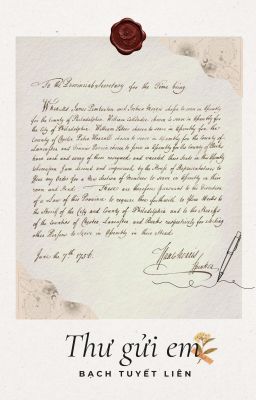 To the Provincial Secretary for the Time being
Whereas James Pemberton and Joshua Morris chose to serve in Assembly
for the County of Philadelphia William Callender chose to serve in Assembly for
the City of Philadelphia William Peters chose to serve in Assembly for the
County of Chester Peter Worrall chose to serve in Assembly for the County of
Lancaster and Francis Parvin chose to serve in Assembly for the County of Berks
have each and every of them resigned and vacated their Seats in the Assembly
whereupon I am desired and impowered by the House of Representatives to
Give my Order for a New Election of Members to serve in Assembly in their
room and stead. These are therefore pursuant to the Direction
of a Law of this Province to require you forthwith to Issue Writs to
the Sheriff of the City and County of Philadelphia and to the Sheriffs
of the Counties of Chester Lancaster and Berks respectively for electing
other Persons to serve in Assembly in their Stead.
June the 7th 1756.
Speaker
Thư gửi em
BẠCH TUYẾT LIÊN